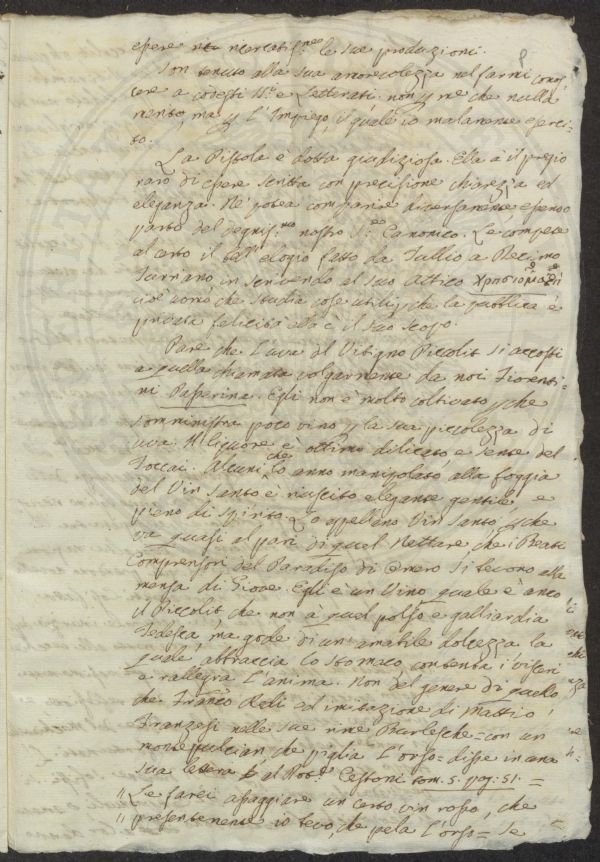 essere ricercati le sue produzioni.
Son tenuto alla sua amorevolezza nel farmi conos
cere a codesti Sig.i e Letterati non p me che nulla
merito, ma p L'Impiego, il quale io malamente eserci-
to.
La Pistola è dotta giudiziosa. Ella à il pregio
raro di essere scritta con precisione chiarezza ed
eleganza. Ne potea comparire diversamente essendo
parto del nostro Sig. Canonico. Le compete
al certo il bell'elogio fatto da Tullio a
Turriano in scrivendo al suo Attico
cioè uomo che studia cose utili, che la pubblica e
privata felicità ella è il suo scopo.
Pare che L'uva del Vitigno Piccolit si accosti
a quella chiamata volgarmente da noi Fiorenti-
ni Passerina. Egli non è molto coltivato p che
somministra poco vino p la sua piccolezza di
uva. Il liquore è ottimo dilicato, e sente del
Toccai. Alcuni che Lo anno manipolato alla foggia
del Vin Santo è riuscito elegante gentile e
pieno di spirito. Lo appellano Vin Santo p che
va quasi al pari di quel Nettare che i Beati
Comprensori del Paradiso di Omero si beono alla
mensa di Giove. Egli è un Vino quale è anco
il Piccolit che non à quel polso e galliardia
Tedesca, ma gode di un' amabile dolcezza la
quale abbraccia Lo Stomaco, contenta i visceri
e rallegra L'anima. Non del genere di quello
che Franco Redi ad imitazione di Mattio
Franzesi nelle sue rime Burlesche = con un
montepulcian che piglia L'orso = disse in una
sua lettera al Cestoni tom. 5. pag: 51. =
Le farei assaggiare un certo vin rosso, che
presentemente io bevo, che pela L'orso = Se